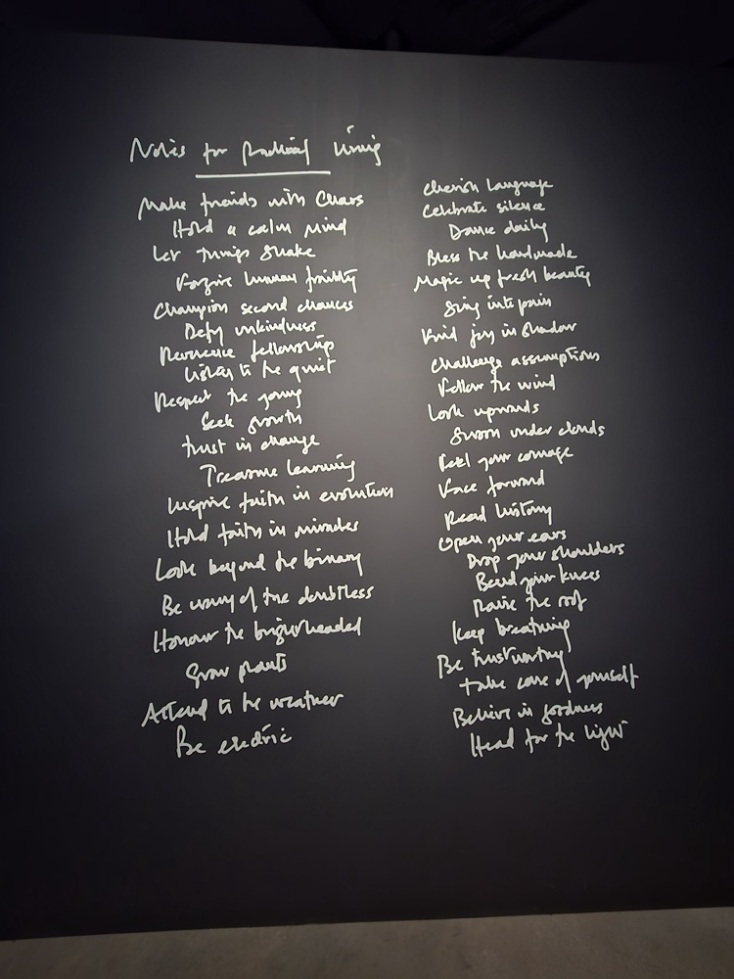 Notes for Radical Living
Make friends with Chaos
Hold a calm mind
Let things shake
Forgive human frailty
Champion second chances
Defy unkindness
Reverence fellowship
Listen to the quiet
Respect the young
Seek growth
Trust in change
Treasure learning
Inspire faith in evolution
Hold faith in miracles
Look beyond the binary
Be wary of the doubtless
Honour the brighthearted
Grow plants
Attend to the weather
Be electric
Cherish Language
Celebrate silence
Dance daily
Bless the handmade
Magic up fresh beauty
Sing into pain
Find joy in shadow
Challenge assumptions
Follow the wind
Look upwards
Swoon under clouds
Feel your courage
Face forward
Read history
Open your ears
Drop your shoulders
Bend your knees
Raise the roof
Keep breathing
Be trustworthy
Take care of yourself
Believe in goodness
Head for the light